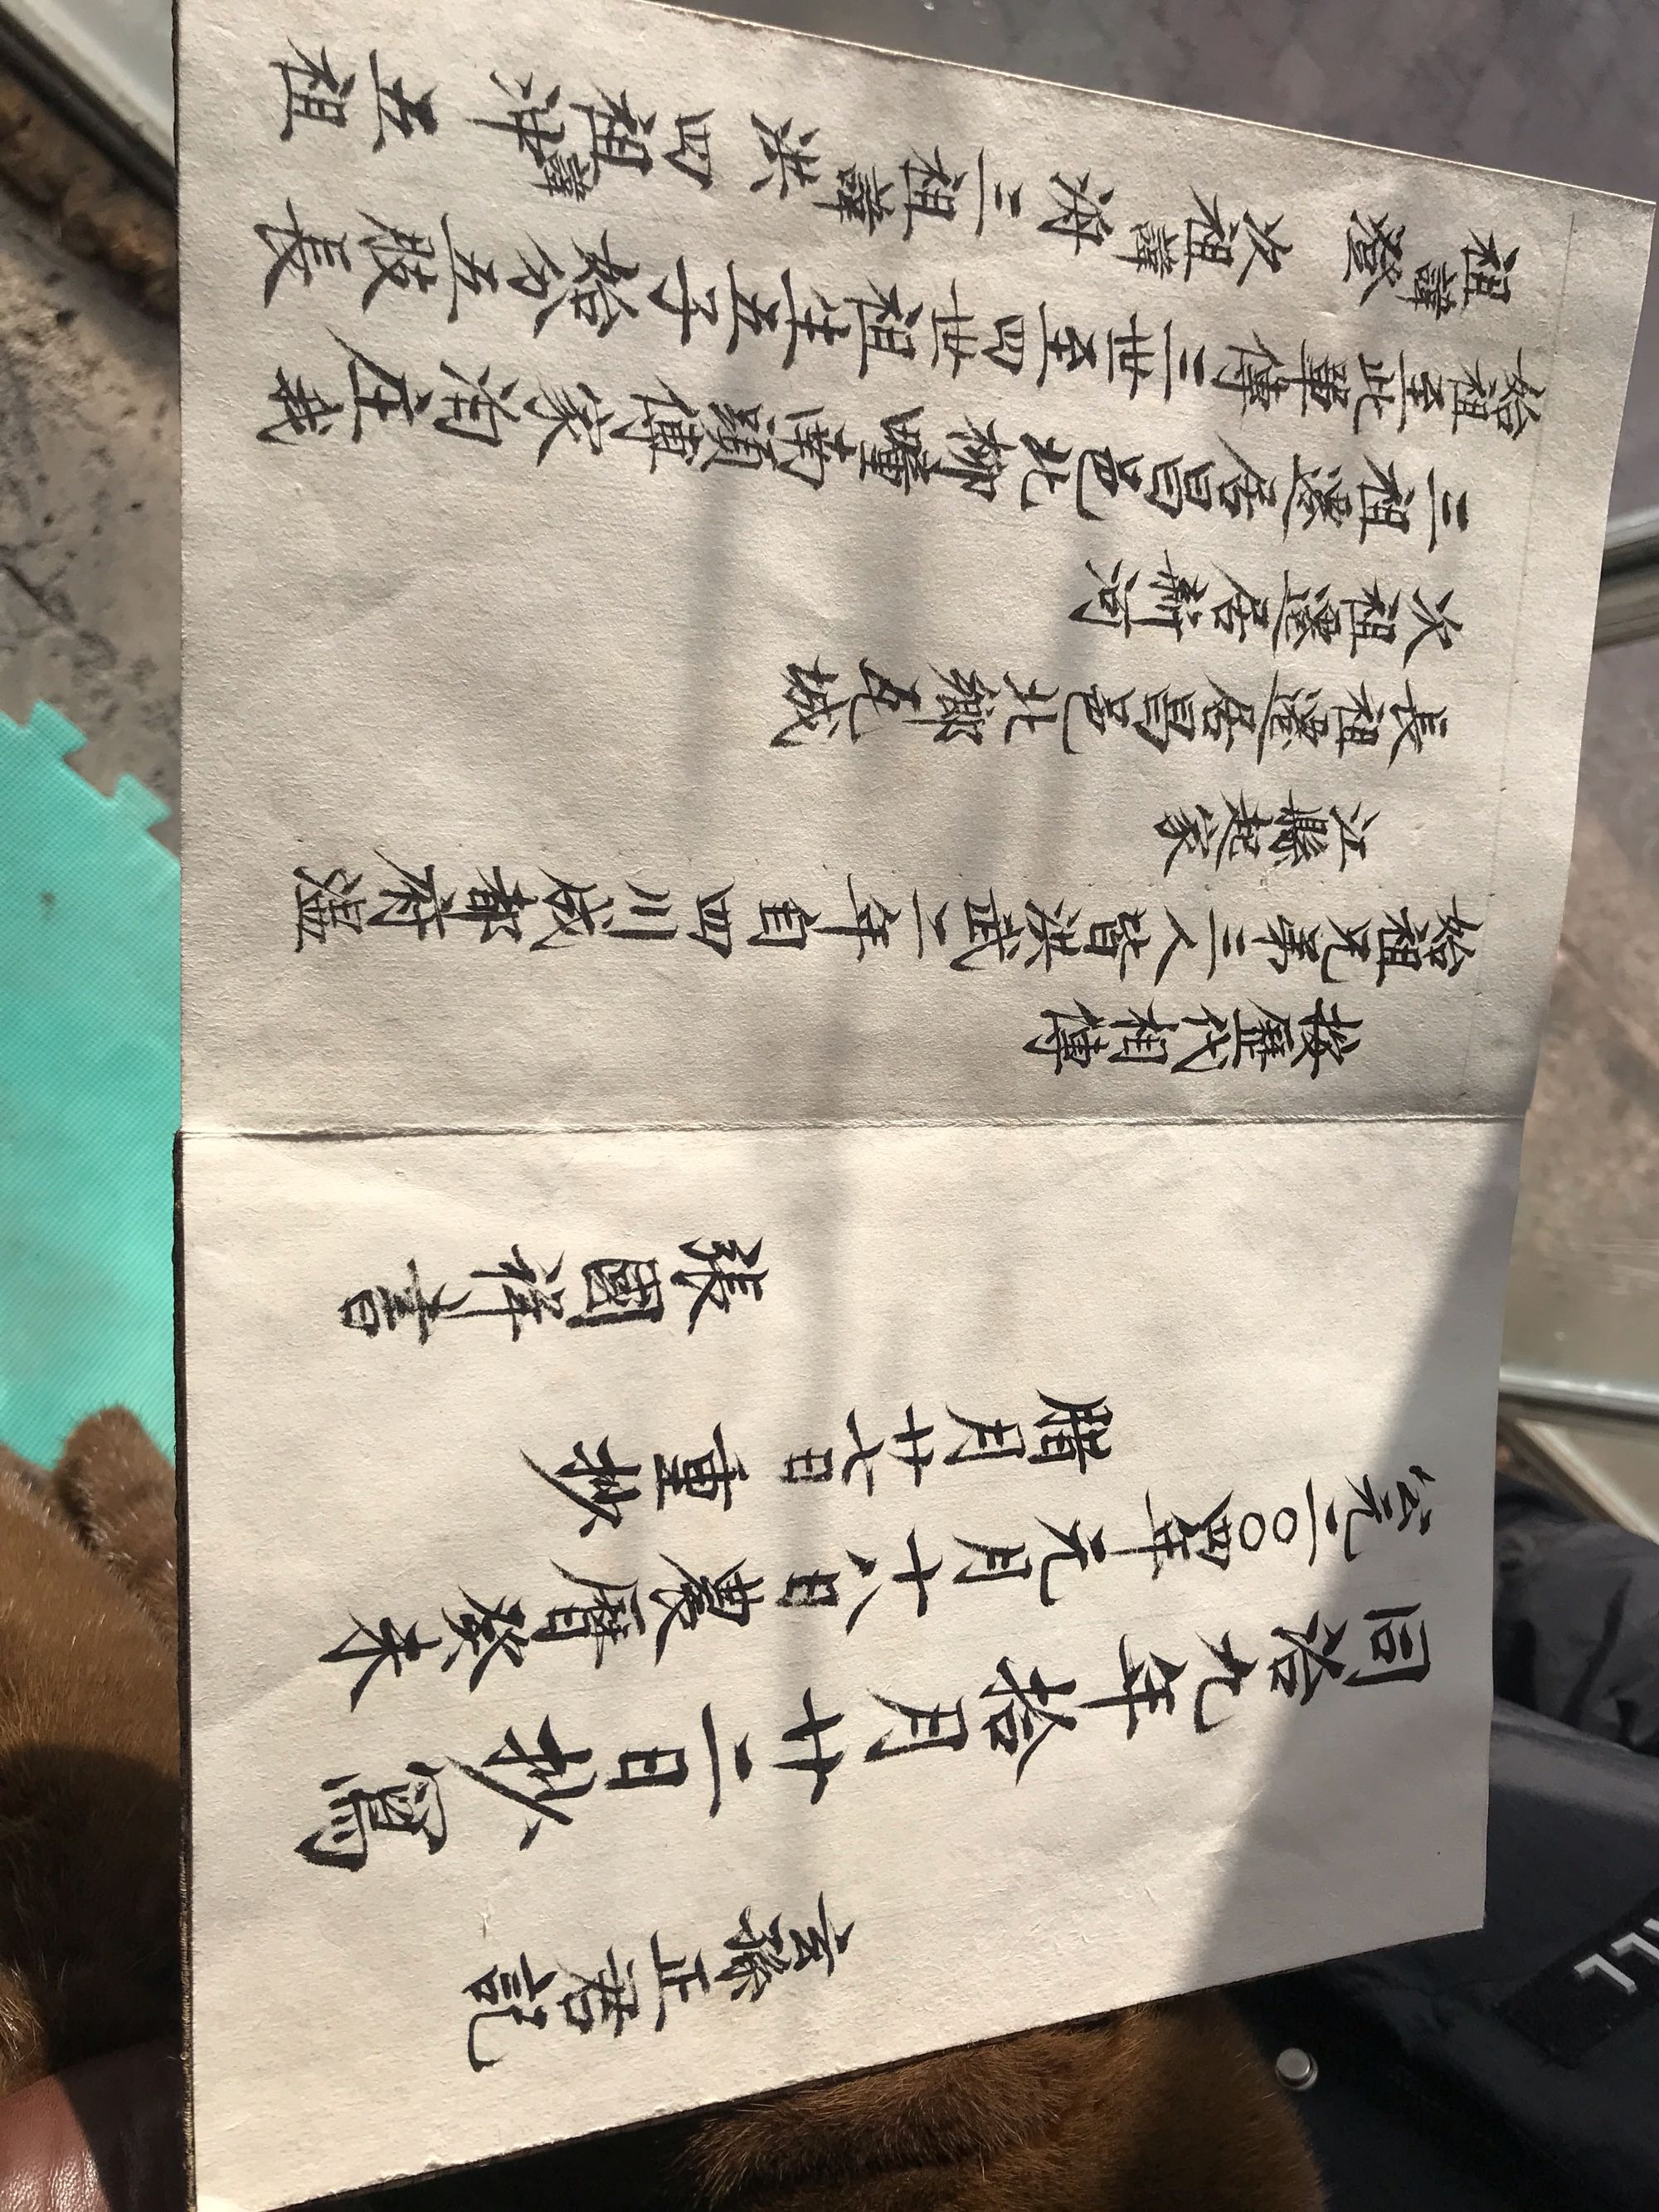 玄孫正君記
同治九年拾月廿二日抄寫
公元二〇〇四年元月十八日農曆癸未
腊月廿七日重抄
張國祥書
按歷代相傳
始祖兄弟三人皆洪武二年自四川成都府溫
江縣起家
長祖遷居昌邑北鄉瓦城
次祖遷居新河
三祖遷居昌邑北柳疃傳家庄我
始祖至此單傳三世至四世祖生五子始分五股長
祖諱 次祖諱 三祖諱洪 四祖諱 五祖